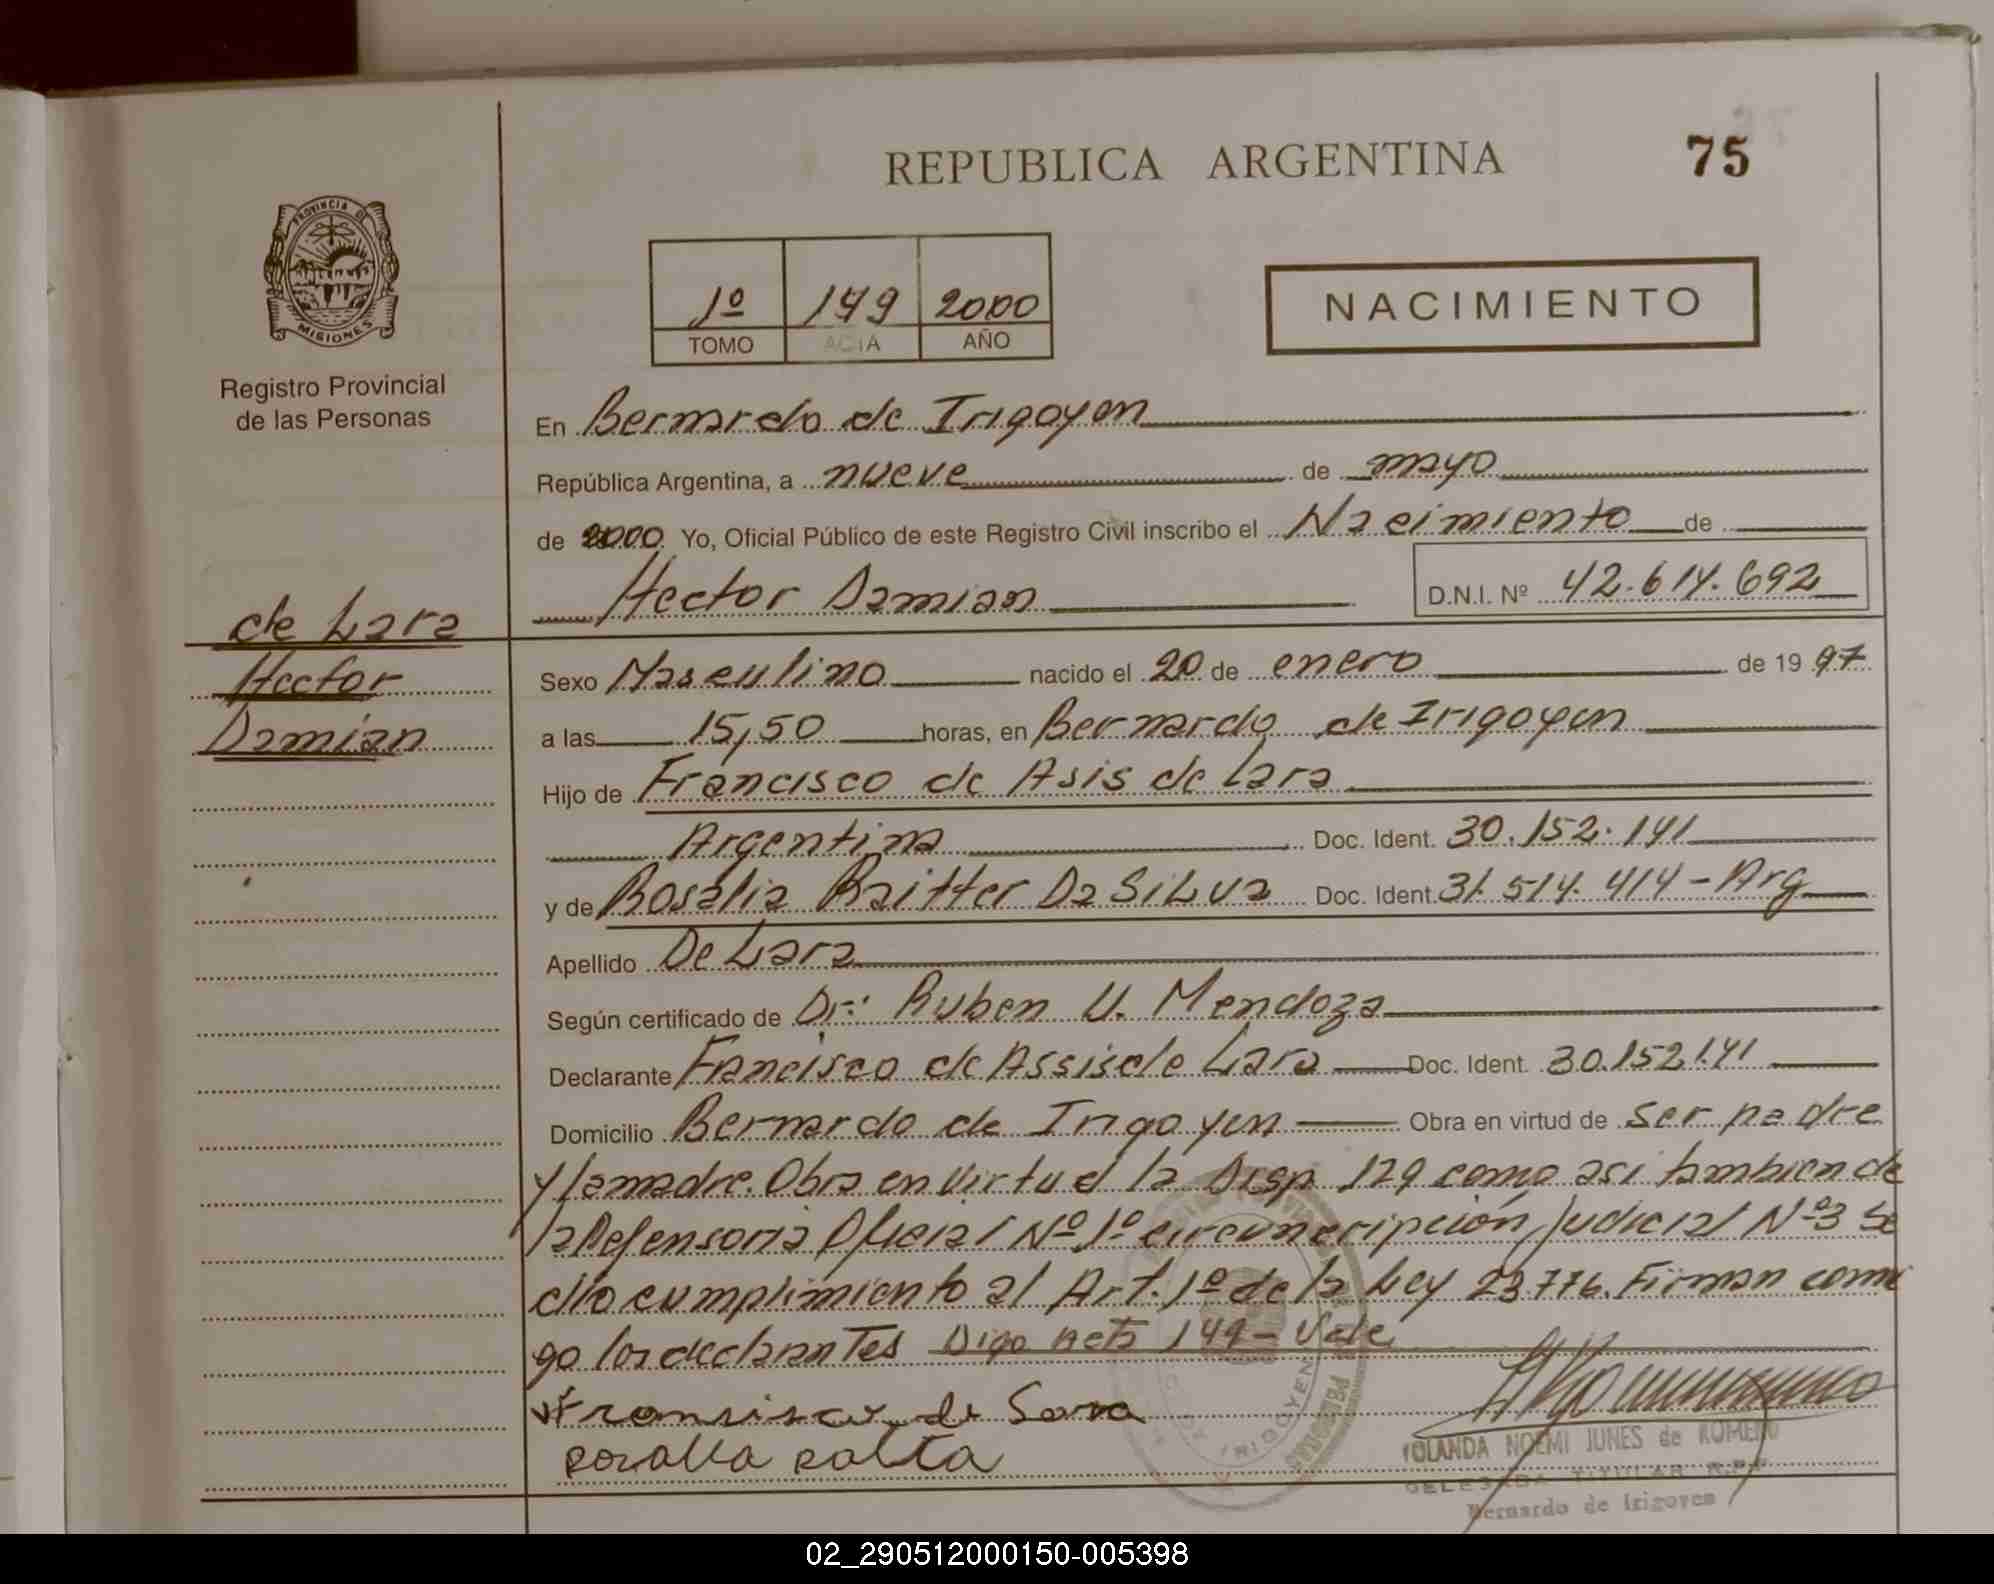 REPUBLICA ARGENTINA
75
PROVINCIA DE
MISIONES
Registro Provincial
de las Personas
1º 149 2000
TOMO ACTA AÑO
NACIMIENTO
En Bernardo de Irigoyen
República Argentina, a nueve de mayo
de 2000 Yo, Oficial Público de este Registro Civil inscribo el Nacimiento de
Hector Damian D.N.I. Nº 42.614.692
de Lara
Hector
Damian
Sexo Masculino nacido el 20 de enero de 19 97
a las 15,50 horas, en Bernardo de Irigoyen
Hijo de Francisco de Asis de Lara
Argentina Doc. Ident. 30.152.141
y de Rosalia Raitter Da Silva Doc. Ident. 31.514.414 - Arg
Apellido De Lara
Según certificado de Dr: Ruben U. Mendoza
Declarante Francisco de Assis de Lara Doc. Ident. 30.152.141
Domicilio Bernardo de Irigoyen Obra en virtud de ser padre
y la madre. Obra en Virtud la Disp. 129 como asi tambien de
la Defensoria Oficial Nº 1º circuncripción Judicial Nº 3 se
dio cumplimiento al Art. 1º de la Ley 23.776. Firman conmi
go los declarantes Digo acta 149 - Vale
Fransisco de Sara
YOLANDA NOEMI JUNES de ROMERO
DELEGADA TITULAR R.P.P.
Bernardo de Irigoyen
02_290512000150-005398